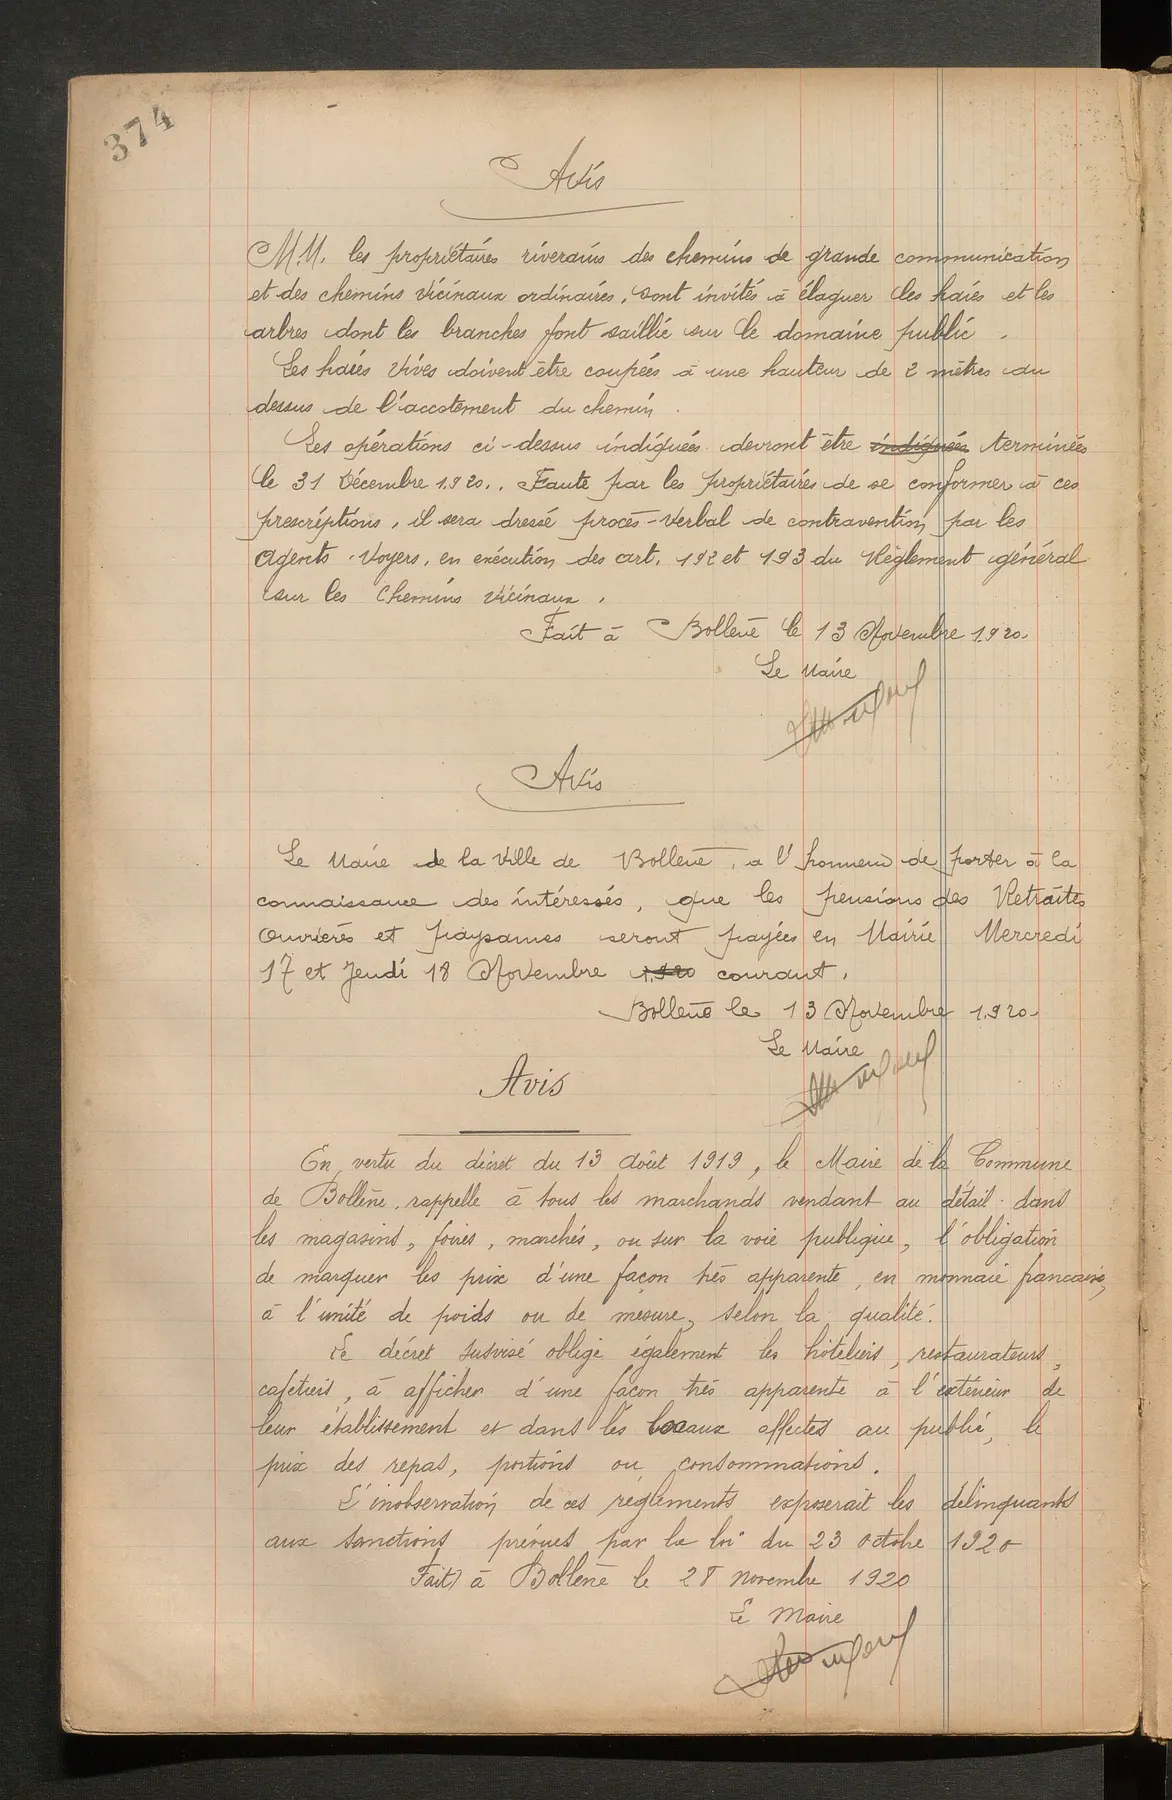 374
Avis
M.M. les propriétaires riverains des chemins de grande communication
et des chemins vicinaux ordinaires, sont invités à élaguer les haies et les
arbres dont les branches font saillie sur le domaine public.
Les haies vives doivent être coupées à une hauteur de 2 mètres au
dessus de l'accotement du chemin.
Les opérations ci-dessus indiquées devront être indiquées terminées
le 31 Décembre 1920.. Faute par les propriétaires de se conformer à ces
prescriptions, il sera dressé procès-verbal de contravention par les
Agents-Voyers, en exécution des art. 192 et 193 du Règlement général
sur les Chemins vicinaux.
Fait à Bollène le 13 Novembre 1920.
Le Maire
Avis
Le Maire de la Ville de Bollène, a l'honneur de porter à la
connaissance des intéressés, que les pensions des Retraites
Ouvrières et paysannes seront payées en Mairie Mercredi
17 et Jeudi 18 Novembre 1.920 courant.
Bollène le 13 Novembre 1.920.
Le Maire
Avis
En vertu du décret du 13 Août 1919, le Maire de la Commune
de Bollène, rappelle à tous les marchands vendant au détail dans
les magasins, foires, marchés, ou sur la voie publique, l'obligation
de marquer les prix d'une façon très apparente, en monnaie française,
à l'unité de poids ou de mesure, selon la qualité.
Le décret susvisé oblige également les hôteliers, restaurateurs,
cafetiers, à afficher d'une façon très apparente à l'extérieur de
leur établissement et dans les locaux affectés au public, le
prix des repas, portions ou consommations.
L'inobservation de ces règlements exposerait les délinquants
aux sanctions prévues par la loi du 23 octobre 1920
Fait à Bollène le 28 novembre 1920
Le Maire